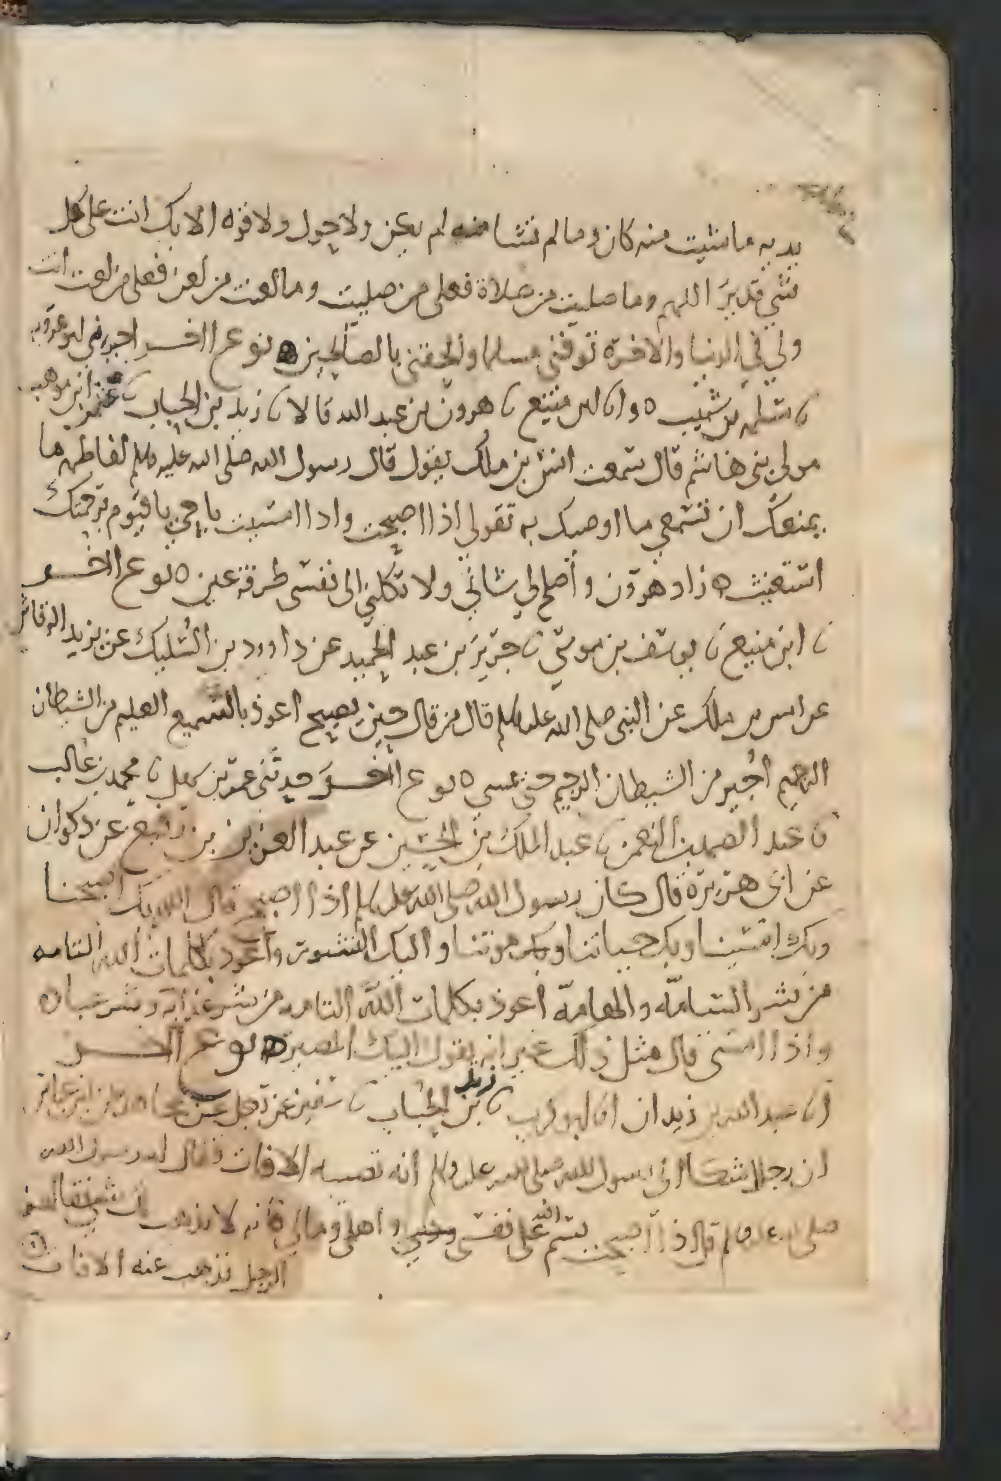 يديه ما شيت منه كان وما لم تشا منه لم يكن ولا حول ولا قوه الا بك انت على كل
شي قدير اللهم وما صليت من صلاة فعلى من صليت وما لعنت من لعن فعلى من لعنت انت
وليي في الدنيا والاخرة توفني مسلما والحقني بالصالحين ه نوع اخر اخبرني ابو عروبه
ن سلمه بن شبيب ه وان ابن منيع ن هرون بن عبد الله قالا ن زيد بن الحباب ن عثمن بن موهب
مولى بني هاشم قال سمعت انس بن ملك يقول قال رسول الله صلى الله عليه وسلم لفاطمه ما
يمنعك ان تسمعي ما اوصيك به تقولي اذا اصبحت واذا امسيت يا حي يا قيوم برحمتك
استغيث ه زاد هرون واصلح لي شاني ولا تكلني الى نفسي طرفة عين ه نوع اخر
ن ابن منيع ن يوسف بن موسى ن جرير بن عبد الحميد عن داوود بن السليك عن يزيد الرقاشي
عن انس بن ملك عن النبي صلى الله عليه وسلم قال من قال حين يصبح اعوذ بالسميع العليم من الشيطان
الرجيم اجير من الشيطان الرجيم حتى يمسي ه نوع اخر حدثني عمر بن سهل ن محمد بن غالب
ن عبد الصمد بن النعمن ن عبد الملك بن الحسين عن عبد العزيز بن رفيع عن ذكوان
عن ابي هريرة قال كان رسول الله صلى الله عليه وسلم اذا اصبح قال اللهم بك اصبحنا
وبك امسينا وبك حياتنا وبك موتنا واليك النشور واعوذ بكلمات الله التامه
من شر السامة والهامة اعوذ بكلمات الله التامه من شر عذابه وشر عباده
واذا امسى قال مثل ذلك غير انه يقول اليك المصير ه نوع اخر
ان عبد الله بن زيدان ان ابو كريب ن زيد بن الحباب ن سفين عن رجل عن مجاهد عن ابن عباس
ان رجلا شكا الى رسول الله صلى الله عليه وسلم انه تصيبه الافات فقال له رسول الله
صلى الله عليه وسلم قال اذا اصبحت بسم الله على نفسي واهلي ومالي فانه لا يذهب لك شي فقالهن
الرجل فذهب عنه الافات